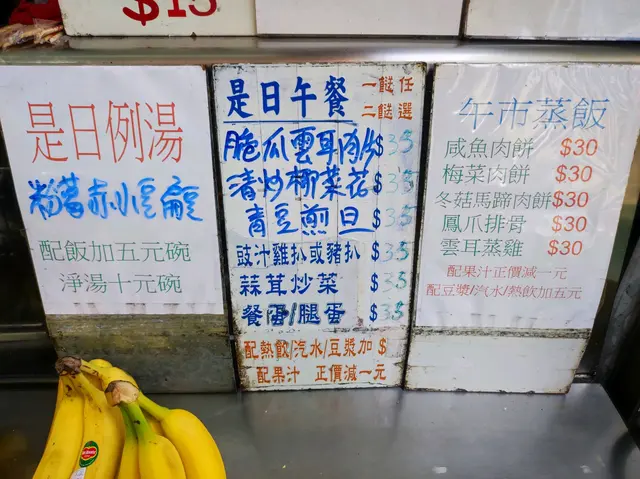 $15
是日例湯
粉葛赤小豆扁豆
配飯加五元碗
淨湯十元碗
是日午餐
一餸任
二餸選
脆瓜雲耳肉片 $35
清炒椰菜花 $35
青豆煎旦 $35
豉汁雞扒或豬扒 $35
蒜茸炒菜 $35
餐蛋/腿蛋 $35
配熱飲/汽水/豆漿加 $
配果汁 正價減一元
午市蒸飯
咸魚肉餅 $30
梅菜肉餅 $30
冬菇馬蹄肉餅 $30
鳳爪排骨 $30
雲耳蒸雞 $30
配果汁正價減一元
配豆漿/汽水/熱飲加五元